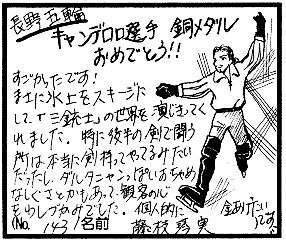 長野五輪
キャンデロロ選手 銅メダル
おめでとう!!
すごかったです!
まさに氷上をステージに
して、「三銃士」の世界を演じきってく
れました。特に後半の剣で闘う
所は本当に剣持ってやってるみたい
だったし、ダルタニャンっぽいおちゃめ
なしぐさとかもあって、観客の心
をわしづかみでした。個人的に
金あげたい
です。
(No. 143 / 名前